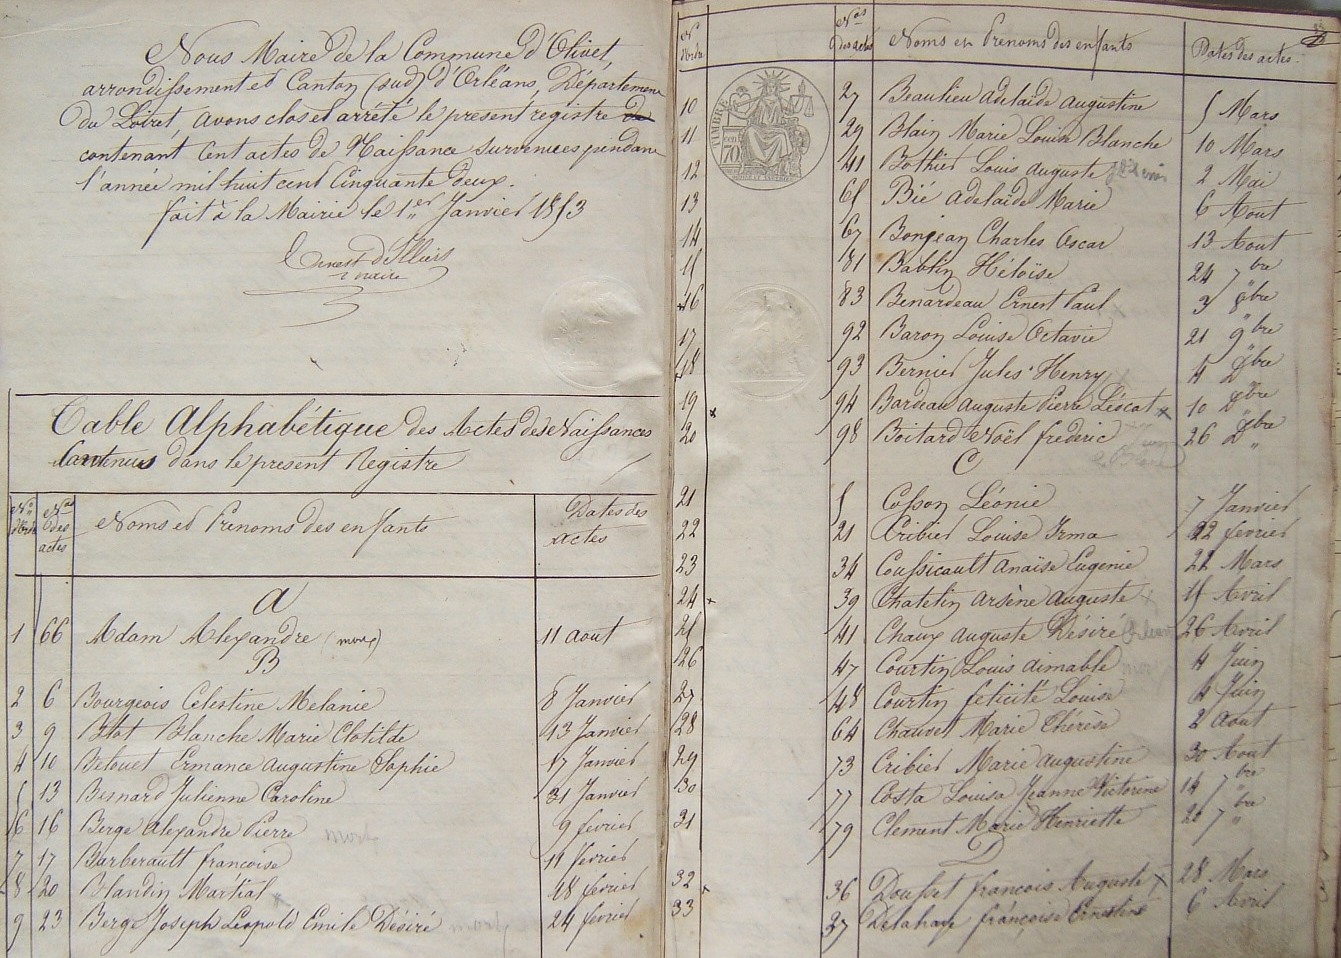 Nous Maire de la Commune d'Olivet,
arrondissement et Canton (sud) d'Orléans, Département
du Loiret, avons clos et arrêté le present registre
contenant Cent actes de Naissance survenues pendant
l'année mil huit cent Cinquante deux.
fait à la Mairie le 1er Janvier 1853
Ernest d'Illiers
maire
Table Alphabétique des Actes des Naissances
Contenues dans le present Registre
Nos d'Ordre Nos des actes Noms et Prenoms des enfants Dates des actes
A
1 66 Adam Alexandre (mort) 11 aout
B
2 6 Bourgeois Celestine Melanie 8 Janvier
3 9 Blot Blanche Marie Clotilde 13 Janvier
4 10 Belouet Ermance Augustine Sophie 17 Janvier
5 13 Besnard Julienne Caroline 31 Janvier
6 16 Berge Alexandre Pierre 9 fevrier
7 17 Barberault françoise 11 fevrier
8 20 Blandin Martial 18 fevrier
9 23 Berge Joseph Leopold Emile Désiré 24 fevrier
No d'Ordre Nos des actes Noms et Prenoms des enfants Dates des actes.
TIMBRE
en 70
10 27 Beaulieu adelaide augustine 5 Mars
11 29 Blain Marie Louise Blanche 10 Mars
12 41 Bothier Louis auguste 2 Mai
13 65 Bié adelaide Marie 6 Aout
14 67 Bongean Charles Oscar 13 Aout
15 81 Bablin Héloïse 24 7bre
16 83 Benardeau Ernest Paul 3 8bre
17 92 Baron Louise Octavie 21 9bre
18 93 Bernier Jules Henry 4 Dbre
19 94 Bardeau auguste Pierre Léocat 10 Dbre
20 98 Boitard Noël frederic 26 Dbre
C
21 5 Cosson Léonie 7 Janvier
22 21 Cribier Louise Irma 22 fevrier
23 34 Coussicault anaïse Eugenie 22 Mars
24 39 Chatelin arsène auguste 15 Avril
25 41 Chaux auguste Désiré 26 Avril
26 47 Courtin Louis aimable 4 Juin
27 48 Courtin felicité Louise 4 Juin
28 64 Chauvet Marie Thérèse 2 Aout
29 73 Cribier Marie augustine 30 Aout
30 77 Costa Louisa Jeanne Victorine 14 7bre
31 79 Clement Marie Henriette 20 7bre
D
32 36 Dousset francois Auguste 28 Mars
33 37 Delahaye françoise Ernestine 6 Avril